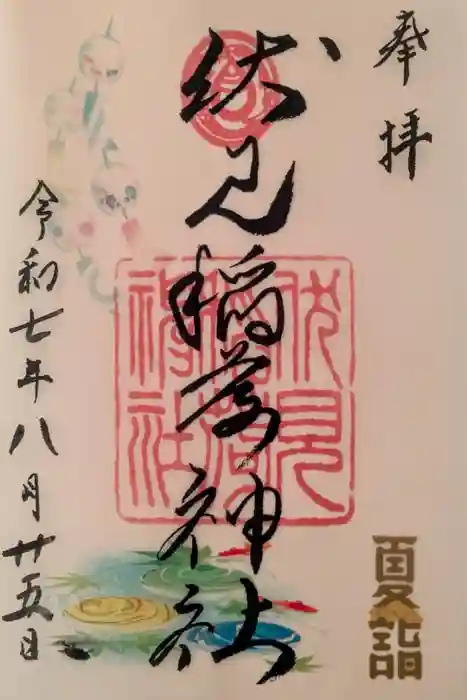 奉拝
伏見稲荷神社
令和七年八月廿五日
夏詣
伏見
稲荷
神社